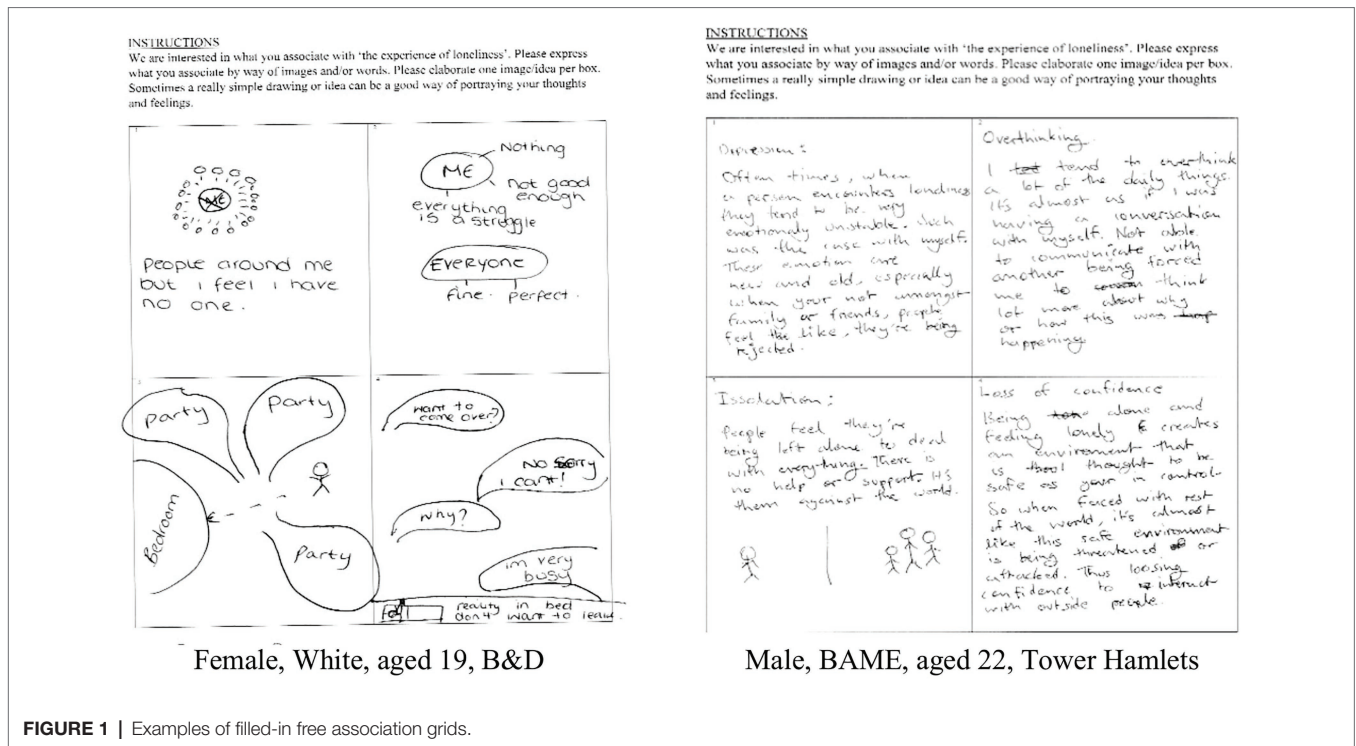 INSTRUCTIONS
We are interested in what you associate with ‘the experience of loneliness’. Please express
what you associate by way of images and/or words. Please elaborate one image/idea per box.
Sometimes a really simple drawing or idea can be a good way of portraying your thoughts
and feelings.
1
ME
People around me
but i feel i have
no one.
2
ME
Nothing
not good
enough
everything
is a struggle
EVERYONE
fine. perfect.
3
party
party
Bedroom
party
4
want to
come over?
NO sorry
i cant!
why?
im very
busy
reality in bed
don't want to leave.
Female, White, aged 19, B&D
INSTRUCTIONS
We are interested in what you associate with ‘the experience of loneliness’. Please express
what you associate by way of images and/or words. Please elaborate one image/idea per box.
Sometimes a really simple drawing or idea can be a good way of portraying your thoughts
and feelings.
1
Depression:
Often times, when
a person encounters
they tend to be very
emotionaly unstable. Such
was the case with myself.
These emotion are
new and old, especially
when your not amongst
family or friends, people
feel like, they're being
rejected.
2
Overthinking.
I tend to overthink
a lot of the daily things.
Its almost as if I was
having a conversation
with myself. Not able
to communicate with
another being forced
me to think
lot more about why
or how this was
happening.
3
Issolation:
People feel they're
being left alone to deal
with everything. There is
no help or support. Its
them against the world.
4
Loss of confidence
Being alone and
feeling lonely creates
an environment that
is thought to be
safe as your in control.
So when faced with rest
of the world, it's almost
like this safe environment
is being threatened or
attacked. Thus loosing
confidence to interact
with outside people.
Male, BAME, aged 22, Tower Hamlets
FIGURE 1 | Examples of filled-in free association grids.